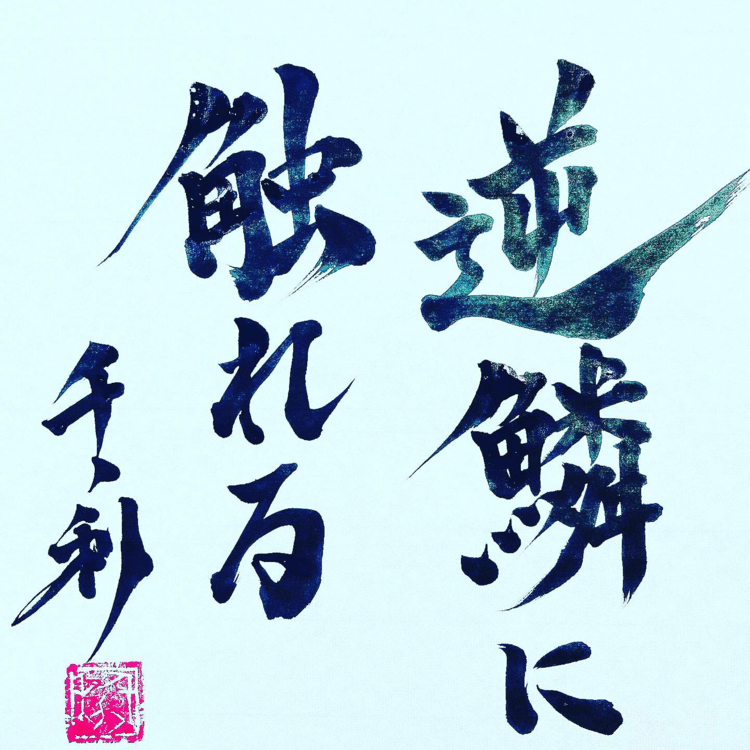 逆鱗に
触れる
千利